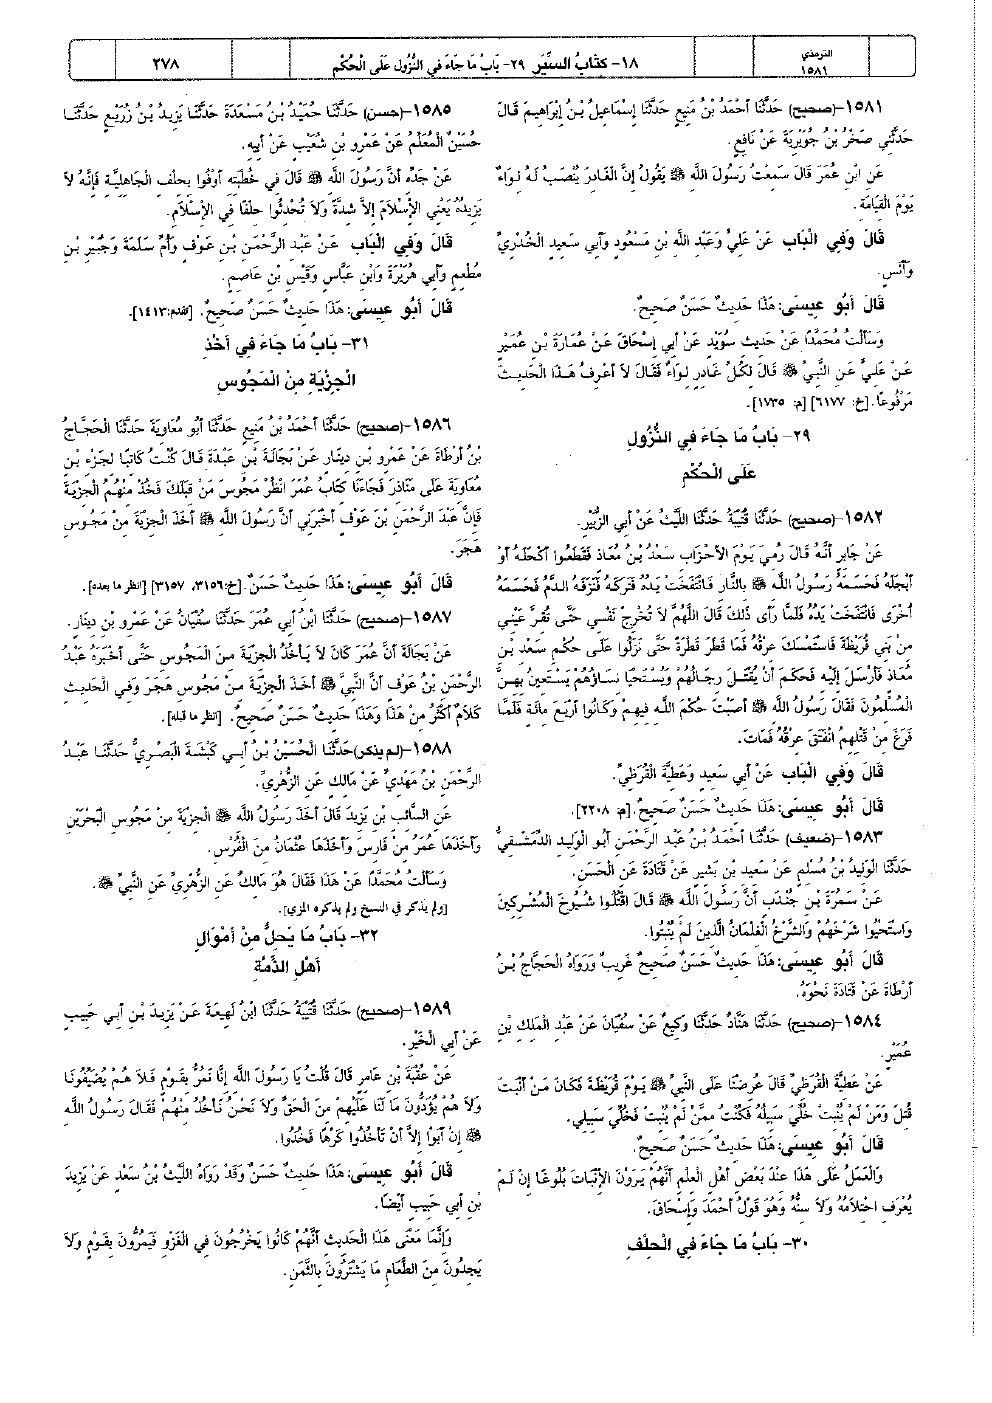 الترمذي
١٥٨١
١٨- كتَابُ السِّيَر ٢٩- بَابُ مَا جَاءَ فِي النُّزُولِ عَلَى الْحُكْمِ
٢٧٨
١٥٨١-(صحيح) حَدَّثَنَا أَحْمَدُ بْنُ مَنِيعٍ حَدَّثَنَا إِسْمَاعِيلُ بْنُ إِبْرَاهِيمَ قَالَ
حَدَّثَنِي صَخْرُ بْنُ جُوَيْرِيَةَ عَنْ نَافِعٍ.
عَنِ ابْنِ عُمَرَ قَالَ سَمِعْتُ رَسُولَ اللَّه ﷺ يَقُولُ إِنَّ الْغَادِرَ يُنْصَبُ لَهُ لِوَاءٌ
يَوْمَ الْقِيَامَةِ.
قَالَ وَفِي الْبَابِ عَنْ عَلِيٍّ وَعَبْدِ اللَّهِ بْنِ مَسْعُودٍ وَأَبِي سَعِيدٍ الْخُدْرِيِّ
وَأَنَسٍ.
قَالَ أَبُو عِيسَى: هَذَا حَدِيثٌ حَسَنٌ صَحِيحٌ.
وَسَأَلْتُ مُحَمَّدًا عَنْ حَدِيثِ سُوَيْدٍ عَنْ أَبِي إِسْحَاقَ عَنْ عُمَارَةَ بْنِ عُمَيْرٍ
عَنْ عَلِيٍّ عَنِ النَّبِيِّ ﷺ قَالَ لِكُلِّ غَادِرٍ لِوَاءٌ فَقَالَ لاَ أَعْرِفُ هَذَا الْحَدِيثَ
مَرْفُوعًا. [خ: ٦١٧٧] [م: ١٧٣٥].
٢٩- بَابُ مَا جَاءَ فِي النُّزُولِ
عَلَى الْحُكْمِ
١٥٨٢-(صحيح) حَدَّثَنَا قُتَيْبَةُ حَدَّثَنَا اللَّيْثُ عَنْ أَبِي الزُّبَيْرِ.
عَنْ جَابِرٍ أَنَّهُ قَالَ رُمِيَ يَوْمَ الأَحْزَابِ سَعْدُ بْنُ مُعَاذٍ فَقَطَعُوا أَكْحَلَهُ أَوْ
أَبْجَلَهُ فَحَسَمَهُ رَسُولُ اللَّهِ ﷺ بِالنَّارِ فَانْتَفَخَتْ يَدُهُ فَتَرَكَهُ فَنَزَفَهُ الدَّمُ فَحَسَمَهُ
أُخْرَى فَانْتَفَخَتْ يَدُهُ فَلَمَّا رَأَى ذَلِكَ قَالَ اللَّهُمَّ لاَ تُخْرِجْ نَفْسِي حَتَّى تُقِرَّ عَيْنِي
مِنْ بَنِي قُرَيْظَةَ فَاسْتَمْسَكَ عِرْقُهُ فَمَا قَطَرَ قَطْرَةً حَتَّى نَزَلُوا عَلَى حُكْمِ سَعْدِ بْنِ
مُعَاذٍ فَأَرْسَلَ إِلَيْهِ فَحَكَمَ أَنْ يُقْتَلَ رِجَالُهُمْ وَيُسْتَحْيَا نِسَاؤُهُمْ يَسْتَعِينُ بِهِنَّ
الْمُسْلِمُونَ فَقَالَ رَسُولُ اللَّهِ ﷺ أَصَبْتَ حُكْمَ اللَّهِ فِيهِمْ وَكَانُوا أَرْبَعَ مِائَةٍ فَلَمَّا
فَرَغَ مِنْ قَتْلِهِمُ انْفَتَقَ عِرْقُهُ فَمَاتَ.
قَالَ وَفِي الْبَابِ عَنْ أَبِي سَعِيدٍ وَعَطِيَّةَ الْقُرَظِيِّ.
قَالَ أَبُو عِيسَى: هَذَا حَدِيثٌ حَسَنٌ صَحِيحٌ. [م: ٢٢٠٨].
١٥٨٣-(ضعيف) حَدَّثَنَا أَحْمَدُ بْنُ عَبْدِ الرَّحْمَنِ أَبُو الْوَلِيدِ الدِّمَشْقِيُّ
حَدَّثَنَا الْوَلِيدُ بْنُ مُسْلِمٍ عَنْ سَعِيدِ بْنِ بَشِيرٍ عَنْ قَتَادَةَ عَنِ الْحَسَنِ.
عَنْ سَمُرَةَ بْنِ جُنْدَبٍ أَنَّ رَسُولَ اللَّهِ ﷺ قَالَ اقْتُلُوا شُيُوخَ الْمُشْرِكِينَ
وَاسْتَحْيُوا شَرْخَهُمْ وَالشَّرْخُ الْغِلْمَانُ الَّذِينَ لَمْ يُنْبِتُوا.
قَالَ أَبُو عِيسَى: هَذَا حَدِيثٌ حَسَنٌ صَحِيحٌ غَرِيبٌ وَرَوَاهُ الْحَجَّاجُ بْنُ
أَرْطَاةَ عَنْ قَتَادَةَ نَحْوَهُ.
١٥٨٤-(صحيح) حَدَّثَنَا هَنَّادٌ حَدَّثَنَا وَكِيعٌ عَنْ سُفْيَانَ عَنْ عَبْدِ الْمَلِكِ بْنِ
عُمَيْرٍ.
عَنْ عَطِيَّةَ الْقُرَظِيِّ قَالَ عُرِضْنَا عَلَى النَّبِيِّ ﷺ يَوْمَ قُرَيْظَةَ فَكَانَ مَنْ أَنْبَتَ
قُتِلَ وَمَنْ لَمْ يُنْبِتْ خُلِّيَ سَبِيلُهُ فَكُنْتُ مِمَّنْ لَمْ يُنْبِتْ فَخُلِّيَ سَبِيلِي.
قَالَ أَبُو عِيسَى: هَذَا حَدِيثٌ حَسَنٌ صَحِيحٌ.
وَالْعَمَلُ عَلَى هَذَا عِنْدَ بَعْضِ أَهْلِ الْعِلْمِ أَنَّهُمْ يَرَوْنَ الإِنْبَاتَ بُلُوغًا إِنْ لَمْ
يُعْرَفِ احْتِلاَمُهُ وَلاَ سِنُّهُ وَهُوَ قَوْلُ أَحْمَدَ وَإِسْحَاقَ.
٣٠- بَابُ مَا جَاءَ فِي الْحِلْفِ
١٥٨٥-(حسن) حَدَّثَنَا حُمَيْدُ بْنُ مَسْعَدَةَ حَدَّثَنَا يَزِيدُ بْنُ زُرَيْعٍ حَدَّثَنَا
حُسَيْنٌ الْمُعَلِّمُ عَنْ عَمْرِو بْنِ شُعَيْبٍ عَنْ أَبِيهِ.
عَنْ جَدِّهِ أَنَّ رَسُولَ اللَّهِ ﷺ قَالَ فِي خُطْبَتِهِ أَوْفُوا بِحِلْفِ الْجَاهِلِيَّةِ فَإِنَّهُ لاَ
يَزِيدُهُ يَعْنِي الإِسْلاَمَ إِلاَّ شِدَّةً وَلاَ تُحْدِثُوا حِلْفًا فِي الإِسْلاَمِ.
قَالَ وَفِي الْبَابِ عَنْ عَبْدِ الرَّحْمَنِ بْنِ عَوْفٍ وَأُمِّ سَلَمَةَ وَجُبَيْرِ بْنِ
مُطْعِمٍ وَأَبِي هُرَيْرَةَ وَابْنِ عَبَّاسٍ وَقَيْسِ بْنِ عَاصِمٍ.
قَالَ أَبُو عِيسَى: هَذَا حَدِيثٌ حَسَنٌ صَحِيحٌ. [تقدم: ١٤١٣].
٣١- بَابُ مَا جَاءَ فِي أَخْذِ
الْجِزْيَةِ مِنَ الْمَجُوسِ
١٥٨٦-(صحيح) حَدَّثَنَا أَحْمَدُ بْنُ مَنِيعٍ حَدَّثَنَا أَبُو مُعَاوِيَةَ حَدَّثَنَا الْحَجَّاجُ
بْنُ أَرْطَاةَ عَنْ عَمْرِو بْنِ دِينَارٍ عَنْ بَجَالَةَ بْنِ عَبَدَةَ قَالَ كُنْتُ كَاتِبًا لِجَزْءِ بْنِ
مُعَاوِيَةَ عَلَى مَنَاذِرَ فَجَاءَنَا كِتَابُ عُمَرَ انْظُرْ مَجُوسَ مَنْ قِبَلَكَ فَخُذْ مِنْهُمُ الْجِزْيَةَ
فَإِنَّ عَبْدَ الرَّحْمَنِ بْنَ عَوْفٍ أَخْبَرَنِي أَنَّ رَسُولَ اللَّهِ ﷺ أَخَذَ الْجِزْيَةَ مِنْ مَجُوسِ
هَجَرَ.
قَالَ أَبُو عِيسَى: هَذَا حَدِيثٌ حَسَنٌ. [خ: ٣١٥٦، ٣١٥٧] [انظر ما بعده].
١٥٨٧-(صحيح) حَدَّثَنَا ابْنُ أَبِي عُمَرَ حَدَّثَنَا سُفْيَانُ عَنْ عَمْرِو بْنِ دِينَارٍ.
عَنْ بَجَالَةَ أَنَّ عُمَرَ كَانَ لاَ يَأْخُذُ الْجِزْيَةَ مِنَ الْمَجُوسِ حَتَّى أَخْبَرَهُ عَبْدُ
الرَّحْمَنِ بْنُ عَوْفٍ أَنَّ النَّبِيَّ ﷺ أَخَذَ الْجِزْيَةَ مِنْ مَجُوسِ هَجَرَ وَفِي الْحَدِيثِ
كَلاَمٌ أَكْثَرُ مِنْ هَذَا وَهَذَا حَدِيثٌ حَسَنٌ صَحِيحٌ. [انظر ما قبله].
١٥٨٨-(لم يذكر) حَدَّثَنَا الْحُسَيْنُ بْنُ أَبِي كَبْشَةَ الْبَصْرِيُّ حَدَّثَنَا عَبْدُ
الرَّحْمَنِ بْنُ مَهْدِيٍّ عَنْ مَالِكٍ عَنِ الزُّهْرِيِّ.
عَنِ السَّائِبِ بْنِ يَزِيدَ قَالَ أَخَذَ رَسُولُ اللَّهِ ﷺ الْجِزْيَةَ مِنْ مَجُوسِ الْبَحْرَيْنِ
وَأَخَذَهَا عُمَرُ مِنْ فَارِسَ وَأَخَذَهَا عُثْمَانُ مِنَ الْفُرْسِ.
وَسَأَلْتُ مُحَمَّدًا عَنْ هَذَا فَقَالَ هُوَ مَالِكٌ عَنِ الزُّهْرِيِّ عَنِ النَّبِيِّ ﷺ.
[ولم يذكر في النسخ ولم يذكره المزي].
٣٢- بَابُ مَا يَحِلُّ مِنْ أَمْوَالِ
أَهْلِ الذِّمَّةِ
١٥٨٩-(صحيح) حَدَّثَنَا قُتَيْبَةُ حَدَّثَنَا ابْنُ لَهِيعَةَ عَنْ يَزِيدَ بْنِ أَبِي حَبِيبٍ
عَنْ أَبِي الْخَيْرِ.
عَنْ عُقْبَةَ بْنِ عَامِرٍ قَالَ قُلْتُ يَا رَسُولَ اللَّهِ إِنَّا نَمُرُّ بِقَوْمٍ فَلاَ هُمْ يُضَيِّفُونَا
وَلاَ هُمْ يُؤَدُّونَ مَا لَنَا عَلَيْهِمْ مِنَ الْحَقِّ وَلاَ نَحْنُ نَأْخُذُ مِنْهُمْ فَقَالَ رَسُولُ اللَّهِ
ﷺ إِنْ أَبَوْا إِلاَّ أَنْ تَأْخُذُوا كَرْهًا فَخُذُوا.
قَالَ أَبُو عِيسَى: هَذَا حَدِيثٌ حَسَنٌ وَقَدْ رَوَاهُ اللَّيْثُ بْنُ سَعْدٍ عَنْ يَزِيدَ
بْنِ أَبِي حَبِيبٍ أَيْضًا.
وَإِنَّمَا مَعْنَى هَذَا الْحَدِيثِ أَنَّهُمْ كَانُوا يَخْرُجُونَ فِي الْغَزْوِ فَيَمُرُّونَ بِقَوْمٍ وَلاَ
يَجِدُونَ مِنَ الطَّعَامِ مَا يَشْتَرُونَ بِالثَّمَنِ.